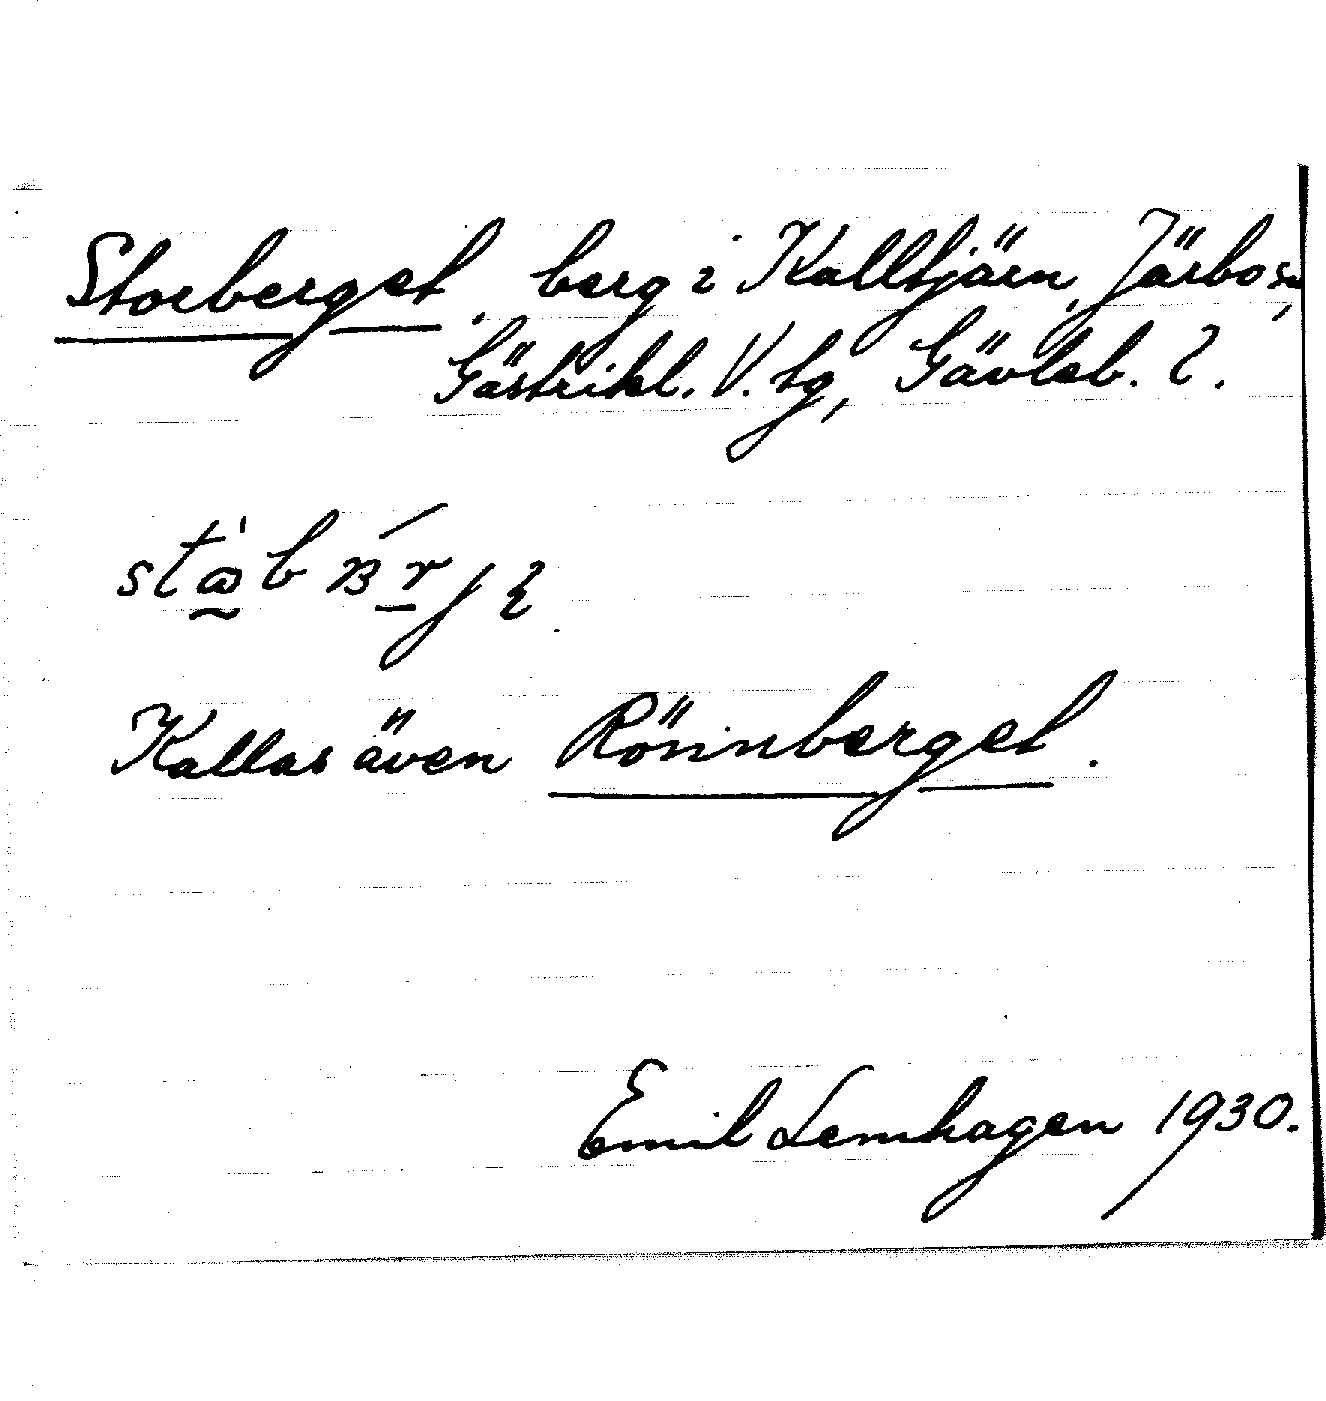 Storberget, berg i Kalltjärn, Järbo sn,
Gästrikl. V. tg, Gävleb. l.
Kallas även Rönnberget.
Emil Lernhagen 1930.